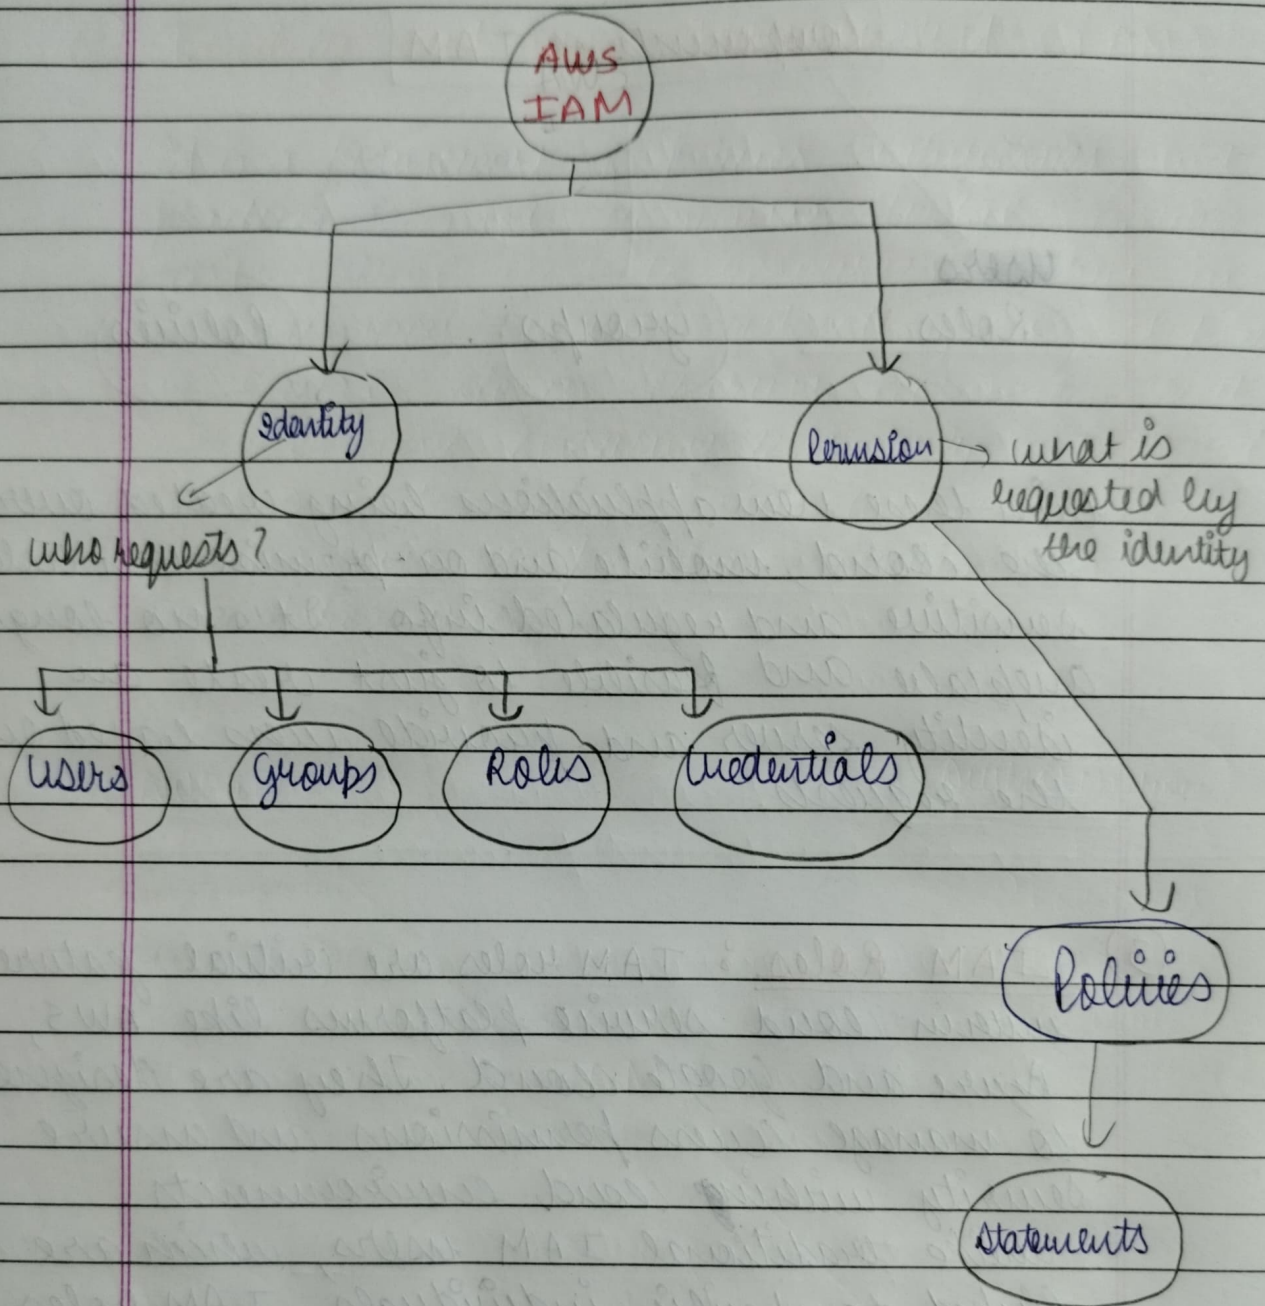 AWS
IAM
Identity
Permission
what is
requested by
the identity
who requests?
Users
Groups
Roles
Credentials
Policies
Statements